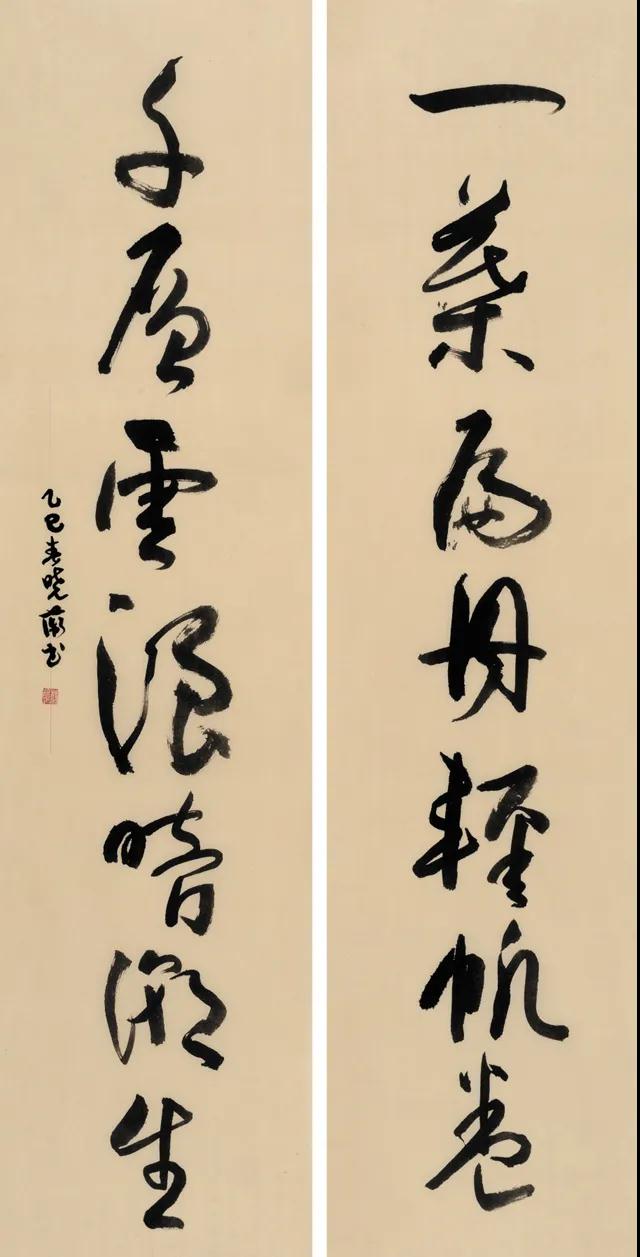 一葉扁舟輕帆卷
千層雲浪暗潮生
乙巳春曉書